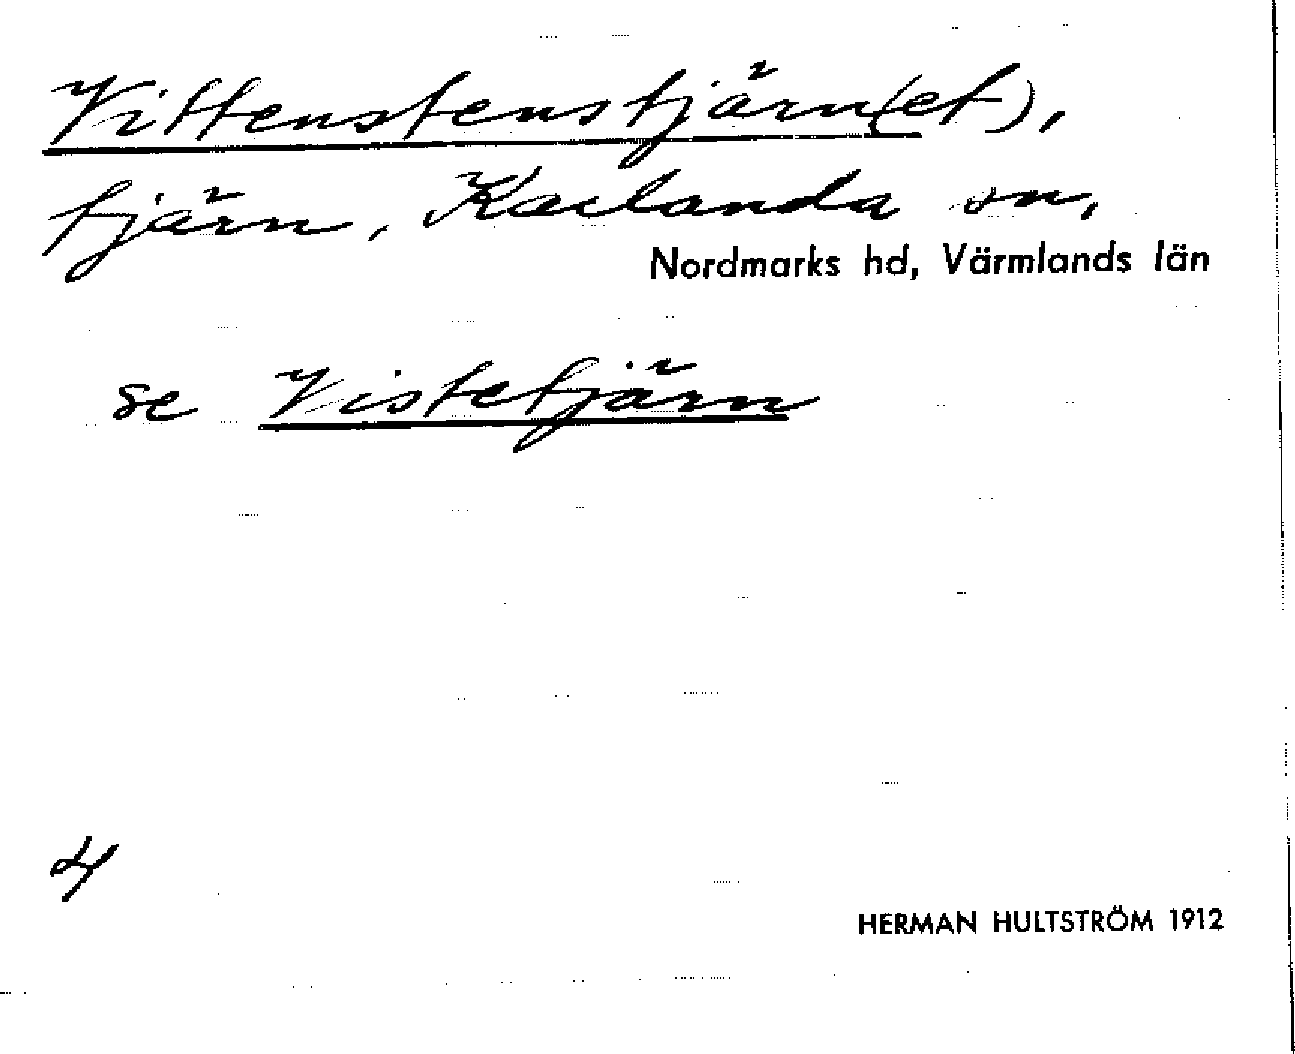 Vittenstenstjärn(et),
tjärn, Karlanda sn,
Nordmarks hd, Värmlands län
se Vistetjärn
4
HERMAN HULTSTRÖM 1912